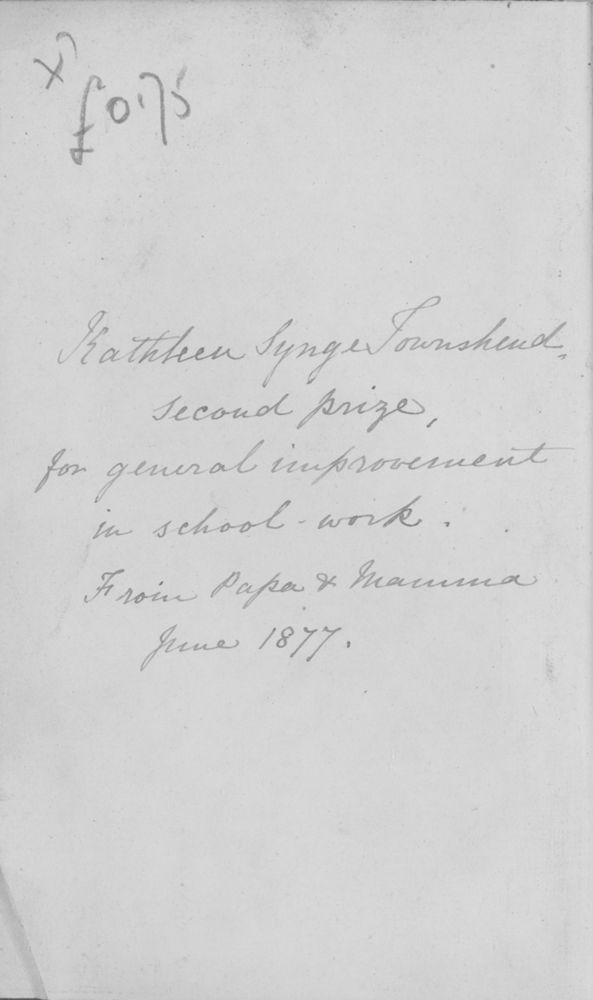 x
£0.75
Kathleen Synge Townshend,
second prize,
for general improvement
in school-work.
From Papa & Mamma
June 1877.